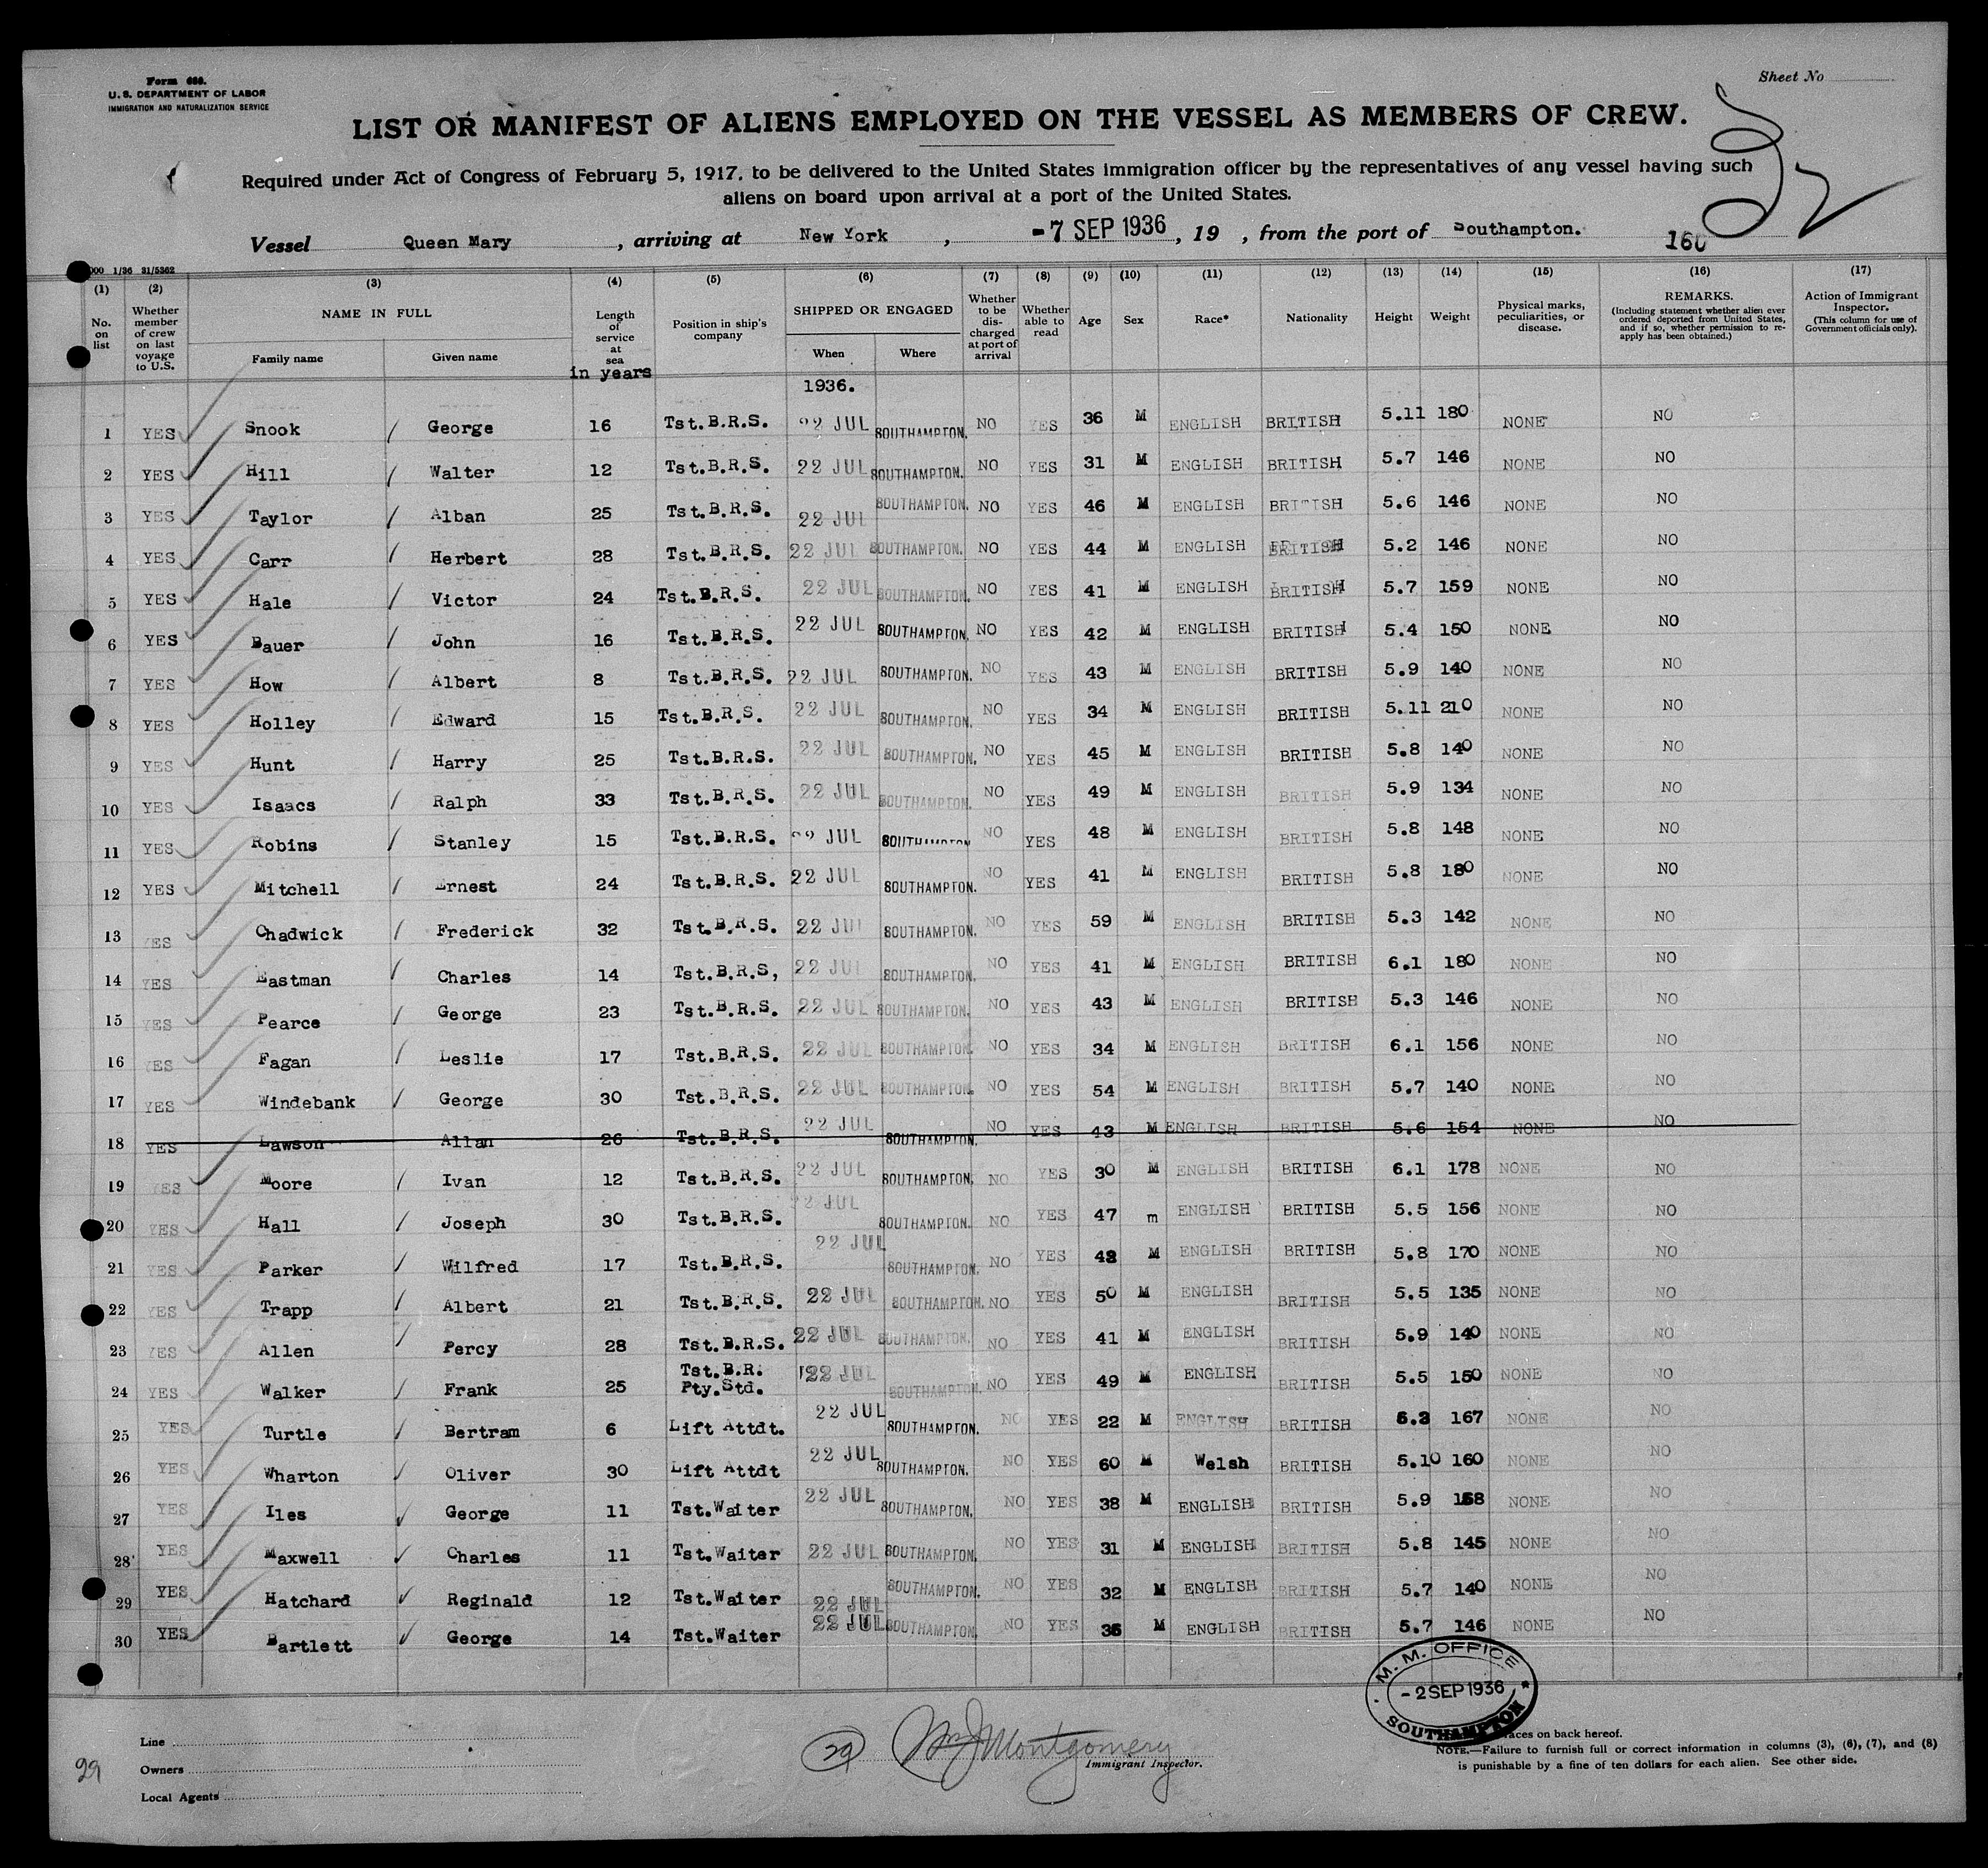 Form 680.
U. S. DEPARTMENT OF LABOR
IMMIGRATION AND NATURALIZATION SERVICE
Sheet No
LIST OR MANIFEST OF ALIENS EMPLOYED ON THE VESSEL AS MEMBERS OF CREW.
Required under Act of Congress of February 5, 1917, to be delivered to the United States immigration officer by the representatives of any vessel having such
aliens on board upon arrival at a port of the United States.
Vessel Queen Mary, arriving at New York, -7 SEP 1936, 19 , from the port of Southampton.
160
000 1/36 31/5362
(1) (2) (3) (4) (5) (6) (7) (8) (9) (10) (11) (12) (13) (14) (15) (16) (17)
No. on list
Whether member of crew on last voyage to U.S.
NAME IN FULL
Family name
Given name
Length of service at sea
in years
Position in ship's company
SHIPPED OR ENGAGED
When
Where
Whether to be dis-charged at port of arrival
Whether able to read
Age
Sex
Race*
Nationality
Height
Weight
Physical marks, peculiarities, or disease.
REMARKS.
(Including statement whether alien ever ordered deported from United States, and if so, whether permission to re-apply has been obtained.)
Action of Immigrant Inspector.
(This column for use of Government officials only).
1936.
1 YES Snook George 16 Tst.B.R.S. 22 JUL SOUTHAMPTON. NO YES 36 M ENGLISH BRITISH 5.11 180 NONE NO
2 YES Hill Walter 12 Tst.B.R.S. 22 JUL SOUTHAMPTON. NO YES 31 M ENGLISH BRITISH 5.7 146 NONE NO
3 YES Taylor Alban 25 Tst.B.R.S. 22 JUL SOUTHAMPTON. NO YES 46 M ENGLISH BRITISH 5.6 146 NONE NO
4 YES Carr Herbert 28 Tst.B.R.S. 22 JUL SOUTHAMPTON. NO YES 44 M ENGLISH BRITISH 5.2 146 NONE NO
5 YES Hale Victor 24 Tst.B.R.S. 22 JUL SOUTHAMPTON. NO YES 41 M ENGLISH BRITISH 5.7 159 NONE NO
6 YES Bauer John 16 Tst.B.R.S. 22 JUL SOUTHAMPTON. NO YES 42 M ENGLISH BRITISH 5.4 150 NONE NO
7 YES How Albert 8 Tst.B.R.S. 22 JUL SOUTHAMPTON. NO YES 43 M ENGLISH BRITISH 5.9 140 NONE NO
8 YES Holley Edward 15 Tst.B.R.S. 22 JUL SOUTHAMPTON. NO YES 34 M ENGLISH BRITISH 5.11 210 NONE NO
9 YES Hunt Harry 25 Tst.B.R.S. 22 JUL SOUTHAMPTON. NO YES 45 M ENGLISH BRITISH 5.8 140 NONE NO
10 YES Isaacs Ralph 33 Tst.B.R.S. 22 JUL SOUTHAMPTON. NO YES 49 M ENGLISH BRITISH 5.9 134 NONE NO
11 YES Robins Stanley 15 Tst.B.R.S. 22 JUL SOUTHAMPTON NO YES 48 M ENGLISH BRITISH 5.8 148 NONE NO
12 YES Mitchell Ernest 24 Tst.B.R.S. 22 JUL SOUTHAMPTON. NO YES 41 M ENGLISH BRITISH 5.8 180 NONE NO
13 YES Chadwick Frederick 32 Tst.B.R.S. 22 JUL SOUTHAMPTON. NO YES 59 M ENGLISH BRITISH 5.3 142 NONE NO
14 YES Eastman Charles 14 Tst.B.R.S, 22 JUL SOUTHAMPTON. NO YES 41 M ENGLISH BRITISH 6.1 180 NONE NO
15 YES Pearce George 23 Tst.B.R.S. 22 JUL SOUTHAMPTON. NO YES 43 M ENGLISH BRITISH 5.3 146 NONE NO
16 YES Fagan Leslie 17 Tst.B.R.S. 22 JUL SOUTHAMPTON. NO YES 34 M ENGLISH BRITISH 6.1 156 NONE NO
17 YES Windebank George 30 Tst.B.R.S. 22 JUL SOUTHAMPTON. NO YES 54 M ENGLISH BRITISH 5.7 140 NONE NO
18 YES Lawson Allan 26 Tst.B.R.S. 22 JUL SOUTHAMPTON. NO YES 43 M ENGLISH BRITISH 5.6 154 NONE NO
19 YES Moore Ivan 12 Tst.B.R.S. 22 JUL SOUTHAMPTON. NO YES 30 M ENGLISH BRITISH 6.1 178 NONE NO
20 YES Hall Joseph 30 Tst.B.R.S. 22 JUL SOUTHAMPTON. NO YES 47 m ENGLISH BRITISH 5.5 156 NONE NO
21 YES Parker Wilfred 17 Tst.B.R.S. 22 JUL SOUTHAMPTON. NO YES M ENGLISH BRITISH 5.8 170 NONE NO
22 YES Trapp Albert 21 Tst.B.R.S. 22 JUL SOUTHAMPTON. NO YES 50 M ENGLISH BRITISH 5.5 135 NONE NO
23 YES Allen Percy 28 Tst.B.R.S. 22 JUL SOUTHAMPTON. NO YES 41 M ENGLISH BRITISH 5.9 140 NONE NO
24 YES Walker Frank 25 Tst.B.R. Pty.Std. 22 JUL SOUTHAMPTON. NO YES 49 M ENGLISH BRITISH 5.5 150 NONE NO
25 YES Turtle Bertram 6 Lift Attdt. 22 JUL SOUTHAMPTON. NO YES 22 M ENGLISH BRITISH 167 NONE NO
26 YES Wharton Oliver 30 Lift Attdt 22 JUL SOUTHAMPTON. NO YES 60 M Welsh BRITISH 5.10 160 NONE NO
27 YES Iles George 11 Tst.Waiter 22 JUL SOUTHAMPTON. NO YES 38 M ENGLISH BRITISH 5.9 NONE NO
28 YES Maxwell Charles 11 Tst.Waiter 22 JUL SOUTHAMPTON. NO YES 31 M ENGLISH BRITISH 5.8 145 NONE NO
29 YES Hatchard Reginald 12 Tst.Waiter 22 JUL SOUTHAMPTON. NO YES 32 M ENGLISH BRITISH 5.7 140 NONE NO
30 YES Bartlett George 14 Tst.Waiter 22 JUL SOUTHAMPTON. NO YES M ENGLISH BRITISH 5.7 146 NONE NO
M. M. OFFICE
-2 SEP 1936
SOUTHAMPTON
Line
Owners
Local Agents
29
29
Wm J Montgomery
Immigrant Inspector.
races on back hereof.
NOTE.—Failure to furnish full or correct information in columns (3), (6), (7), and (8)
is punishable by a fine of ten dollars for each alien. See other side.